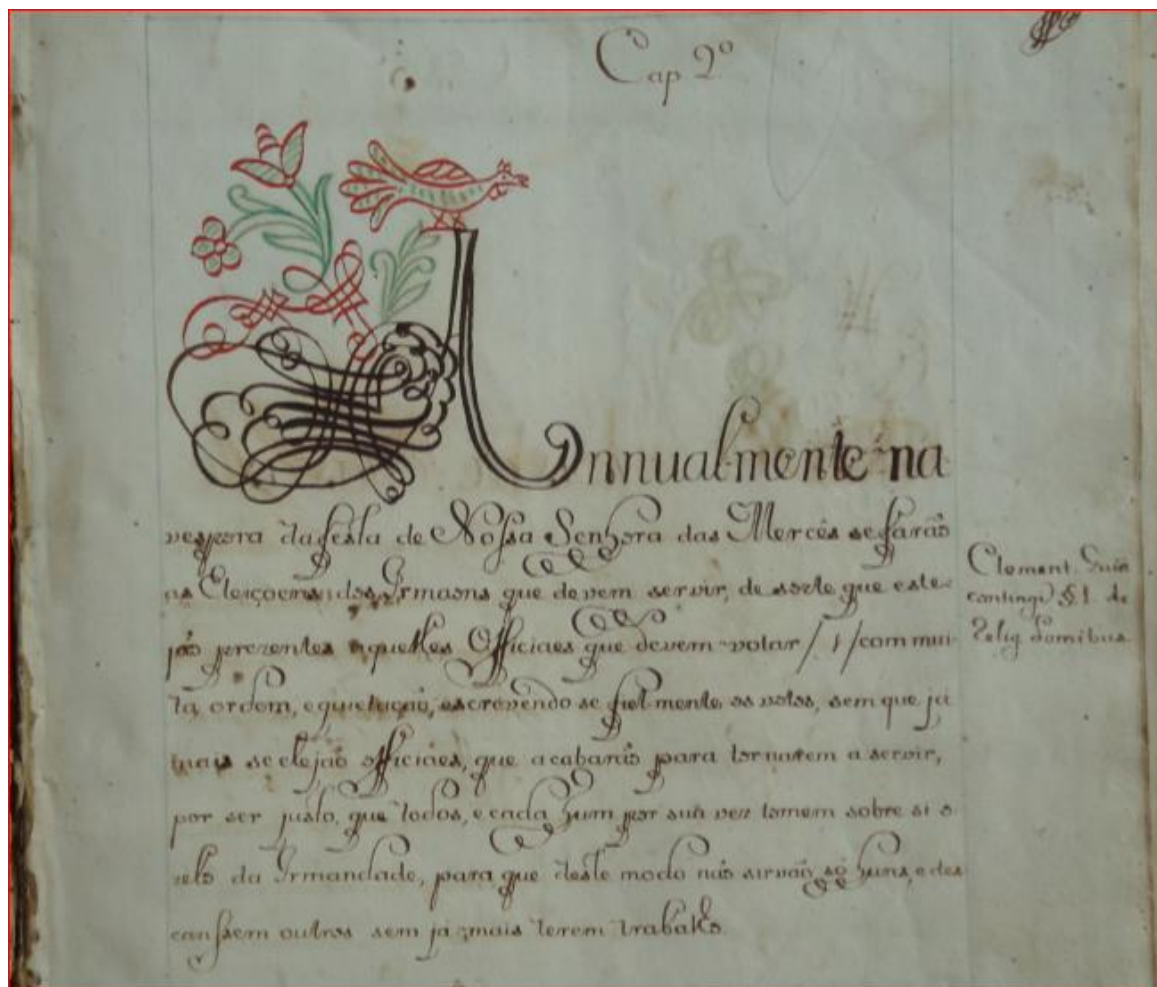 Cap 2º
Annualmente na
vespora da festa de Nossa Senhora das Mercês se farão
as Eleiçoens dos Irmaons que devem servir, de sorte que este-
jão prezentes aquelles Officiaes que devem votar /1/ com mui-
ta ordem, e quietação, escrevendo se fielmente os votos, sem que ja
mais se elejão officiaes, que acabarão para tornarem a servir,
por ser justo, que todos, e cada hum por sua vez tomem sobre si o
zelo da Irmandade, para que deste modo não sirvão só huns, e des
canssem outros sem ja mais terem trabalho.
Clement. Quia
contingi §.1. de
Relig. Domibus